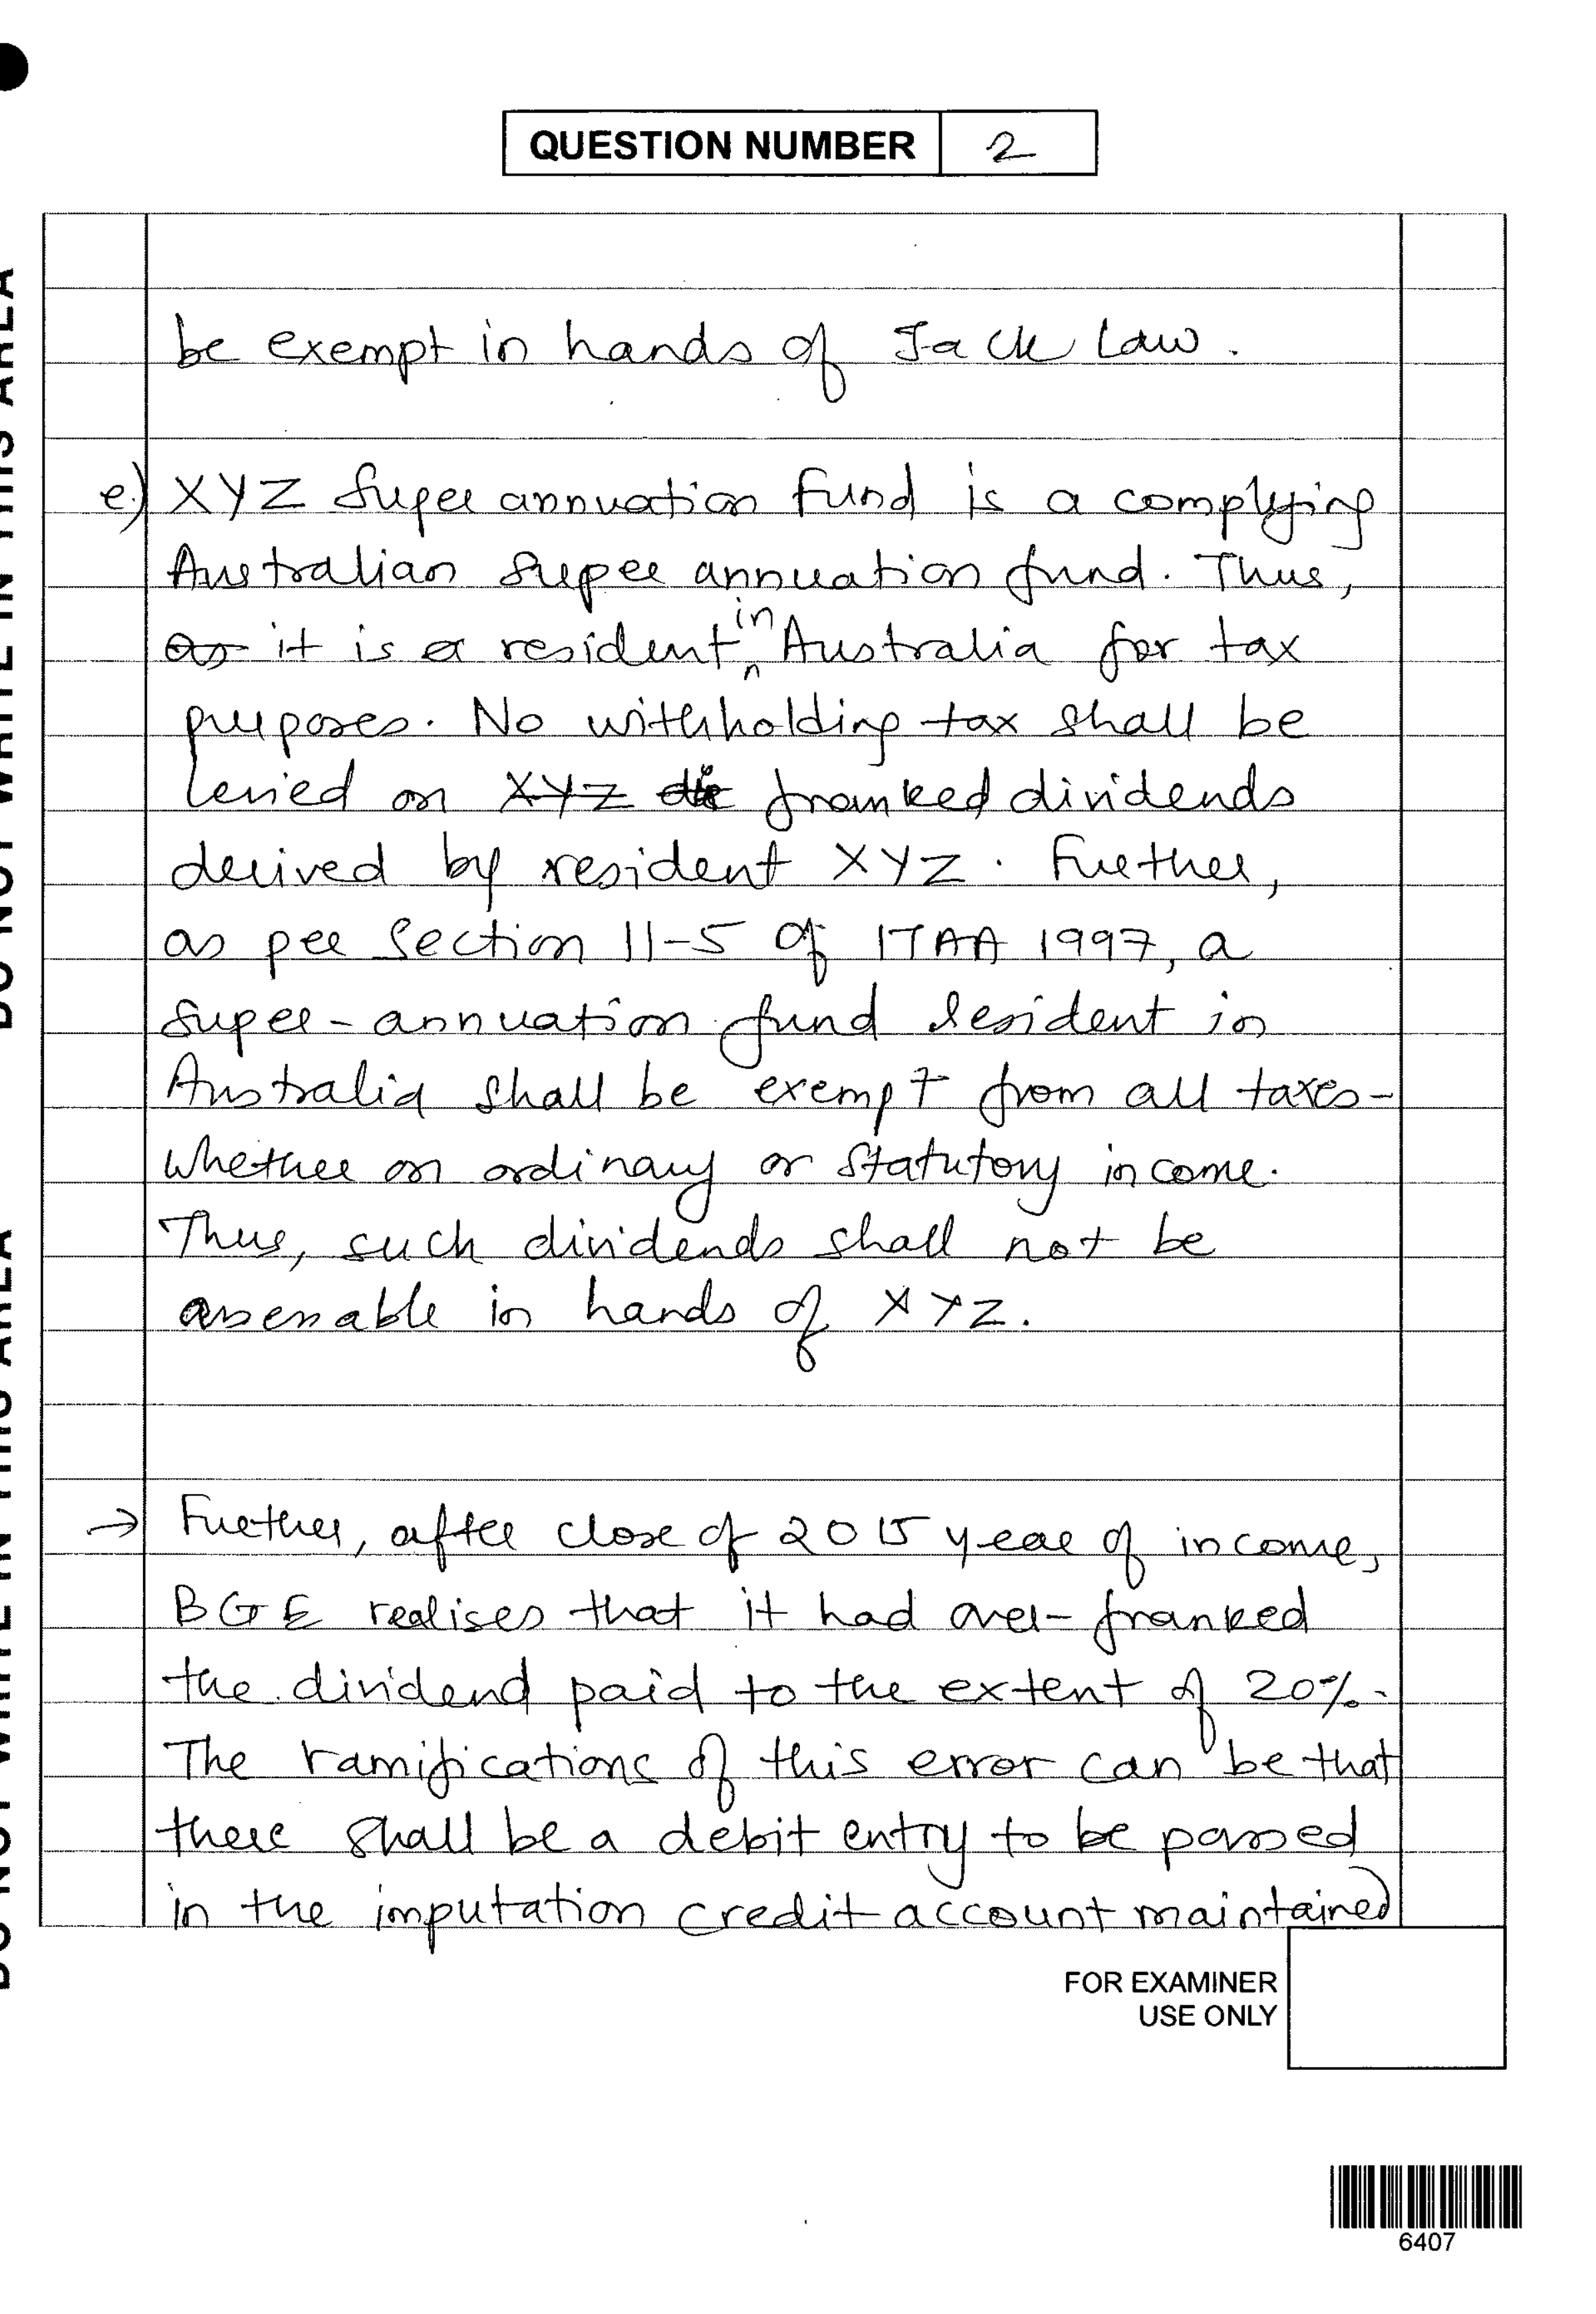 QUESTION NUMBER 2
be exempt in hands of Jack Law.
e) XYZ Super annuation Fund is a complying
Australian Super annuation fund. Thus,
as it is a resident in Australia for tax
purposes. No withholding tax shall be
levied on XYZ franked dividends
derived by resident XYZ. Further,
as per Section 11-5 of ITAA 1997, a
Super-annuation fund resident in
Australia shall be exempt from all taxes-
whether on ordinary or statutory income.
Thus, such dividends shall not be
assessable in hands of XYZ.
→ Further, after close of 2015 year of income,
BGE realises that it had over-franked
the dividend paid to the extent of 20%.
The ramifications of this error can be that
there shall be a debit entry to be passed
in the imputation credit account maintained
FOR EXAMINER
USE ONLY
6407